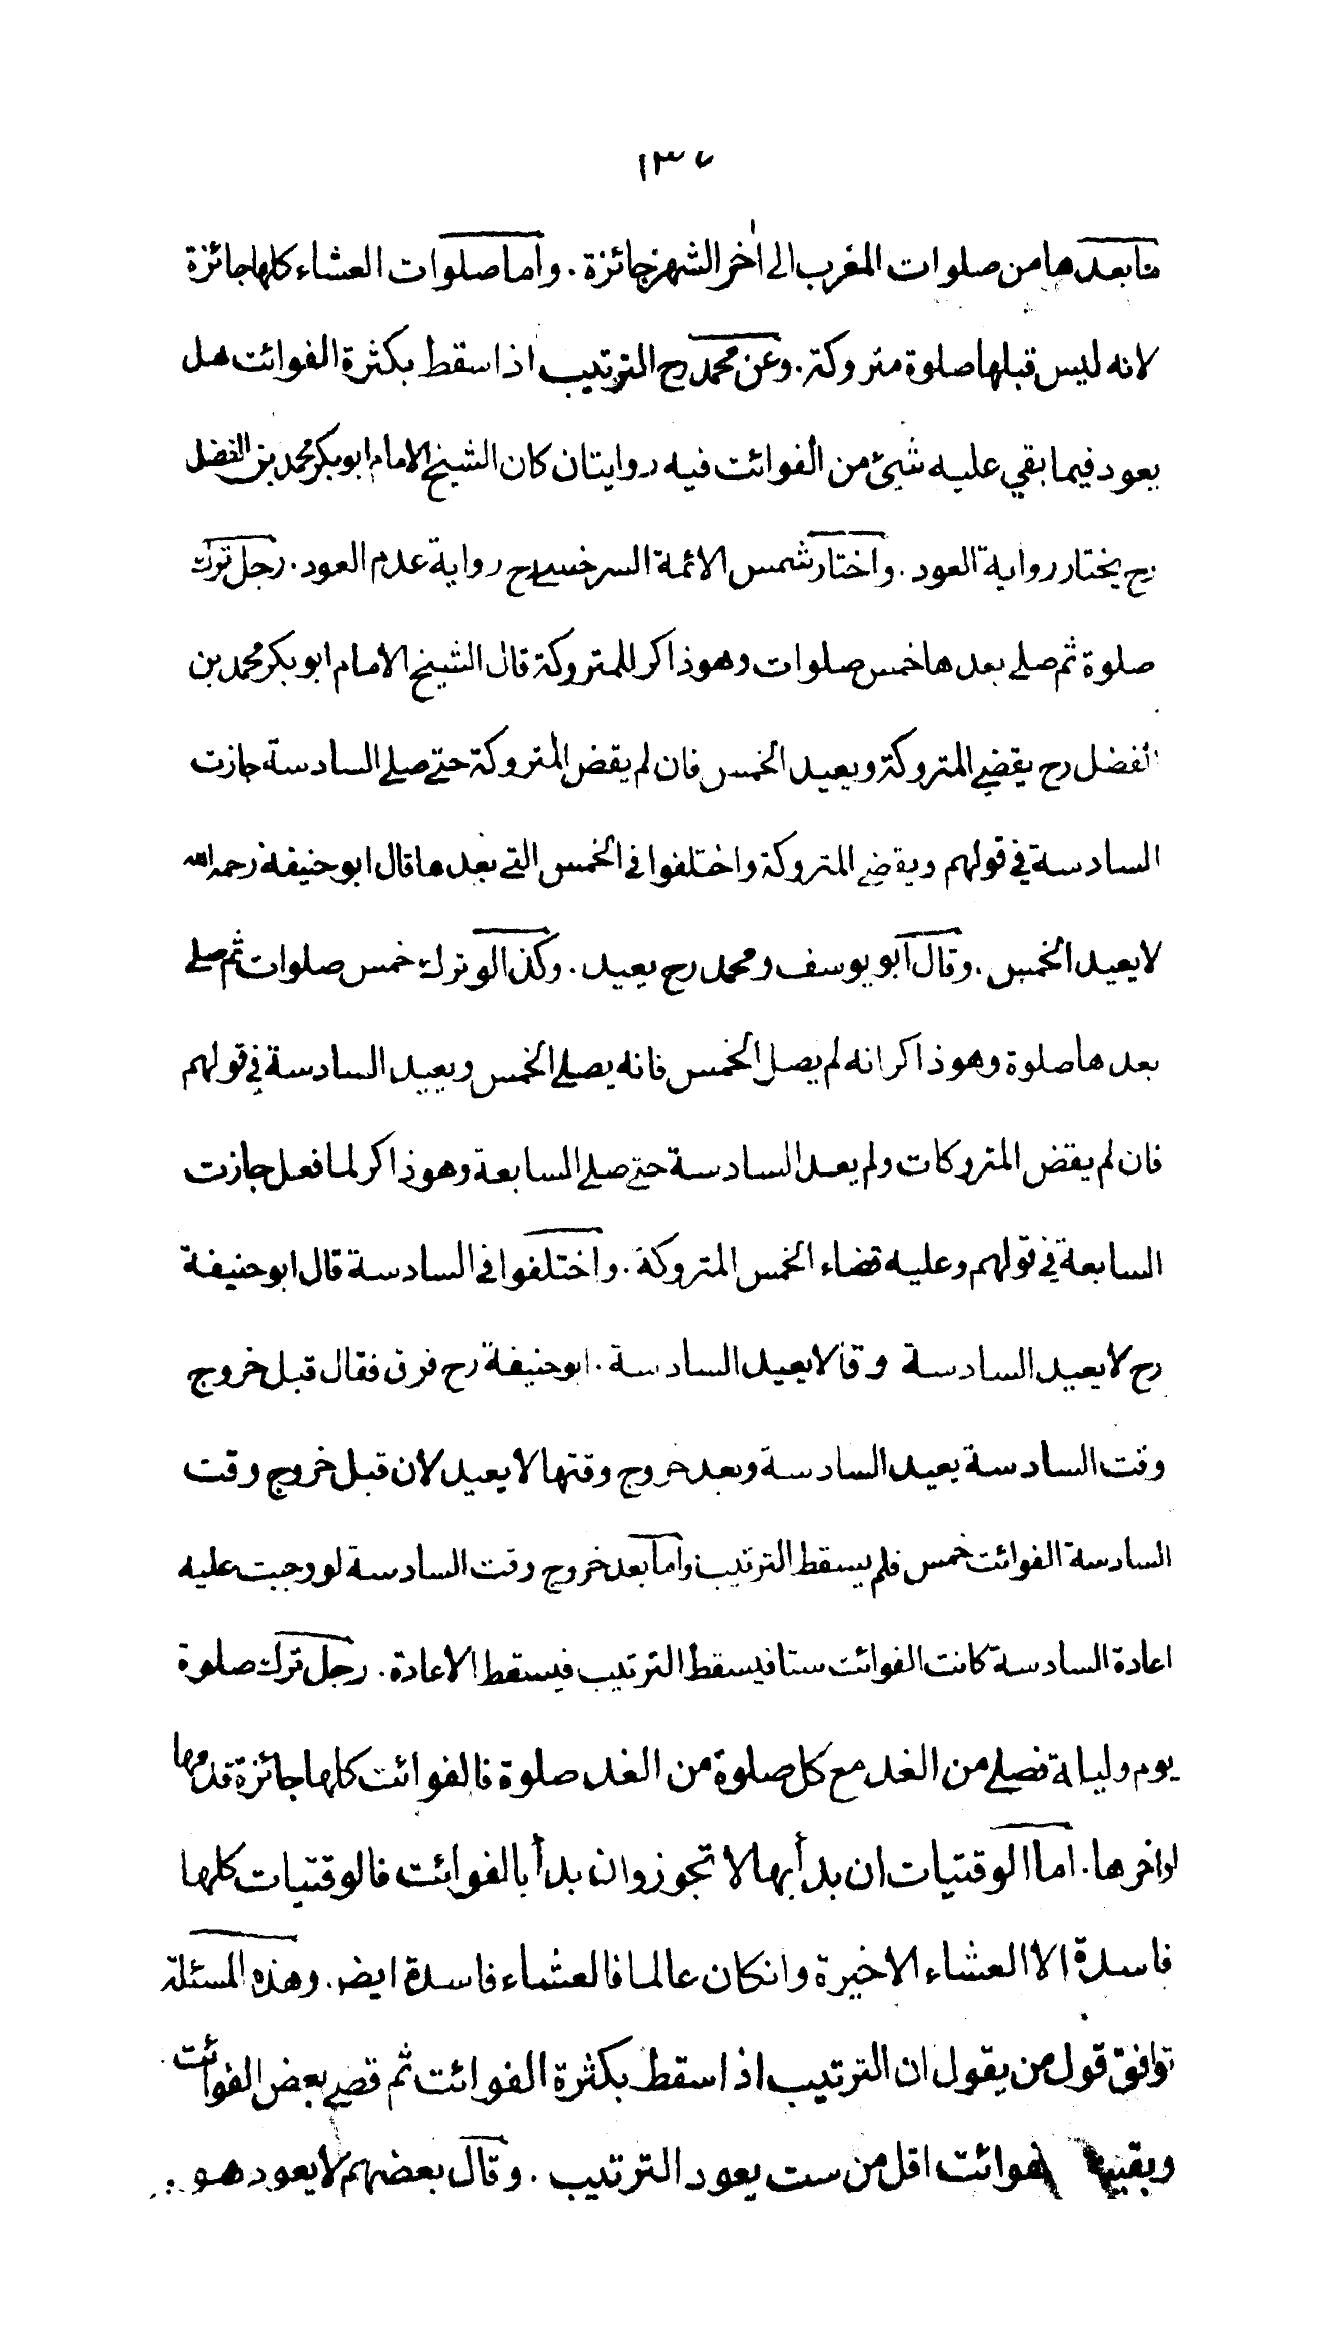 ١٣٧
مابعدها من صلوات المغرب الى اٰخر الشهر جائزة . واما صلوات العشاء كلها جائزة
لانه ليس قبلها صلوة متروكة . وعن محمد رح الترتيب اذا سقط بكثرة الفوائت هل
يعود فيما بقي عليه شيئ من الفوائت فيه روايتان كان الشيخ الامام ابو بكر محمد بن الفضل
رح يختار رواية العود . واختار شمس الائمة السرخسي رح رواية عدم العود . رجل ترك
صلوة ثم صلى بعدها خمس صلوات وهو ذاكر للمتروكة قال الشيخ الامام ابو بكر محمد بن
الفضل رح يقضي المتروكة ويعيد الخمس فان لم يقض المتروكة حتى صلى السادسة جازت
السادسة في قولهم ويقضي المتروكة واختلفوا في الخمس التي بعدها قال ابو حنيفة رحمه الله
لا يعيد الخمس . وقال ابو يوسف ومحمد رح يعيد . وكذا لو ترك خمس صلوات ثم صلى
بعدها صلوة وهو ذاكر انه لم يصل الخمس فانه يصلي الخمس ويعيد السادسة في قولهم
فان لم يقض المتروكات ولم يعد السادسة حتى صلى السابعة وهو ذاكر لما فعل جازت
السابعة في قولهم وعليه قضاء الخمس المتروكة . واختلفوا في السادسة قال ابو حنيفة
رح لا يعيد السادسة وقالا يعيد السادسة . ابو حنيفة رح فرق فقال قبل خروج
وقت السادسة يعيد السادسة وبعد خروج وقتها لا يعيد لان قبل خروج وقت
السادسة الفوائت خمس فلم يسقط الترتيب واما بعد خروج وقت السادسة لو وجبت عليه
اعادة السادسة كانت الفوائت ستا فيسقط الترتيب فيسقط الاعادة . رجل ترك صلوة
يوم وليلة فصلى من الغد مع كل صلوة من الغد صلوة فالفوائت كلها جائزة قدمها
او اخرها . اما الوقتيات ان بدأ بها لا تجوز وان بدأ بالفوائت فالوقتيات كلها
فاسدة الا العشاء الاخيرة وانكان عالما فالعشاء فاسدة ايضا . وهذه المسئلة
توافق قول من يقول ان الترتيب اذا سقط بكثرة الفوائت ثم قضى بعض الفوائت
وبقيت فوائت اقل من ست يعود الترتيب . وقال بعضهم لا يعود هو .